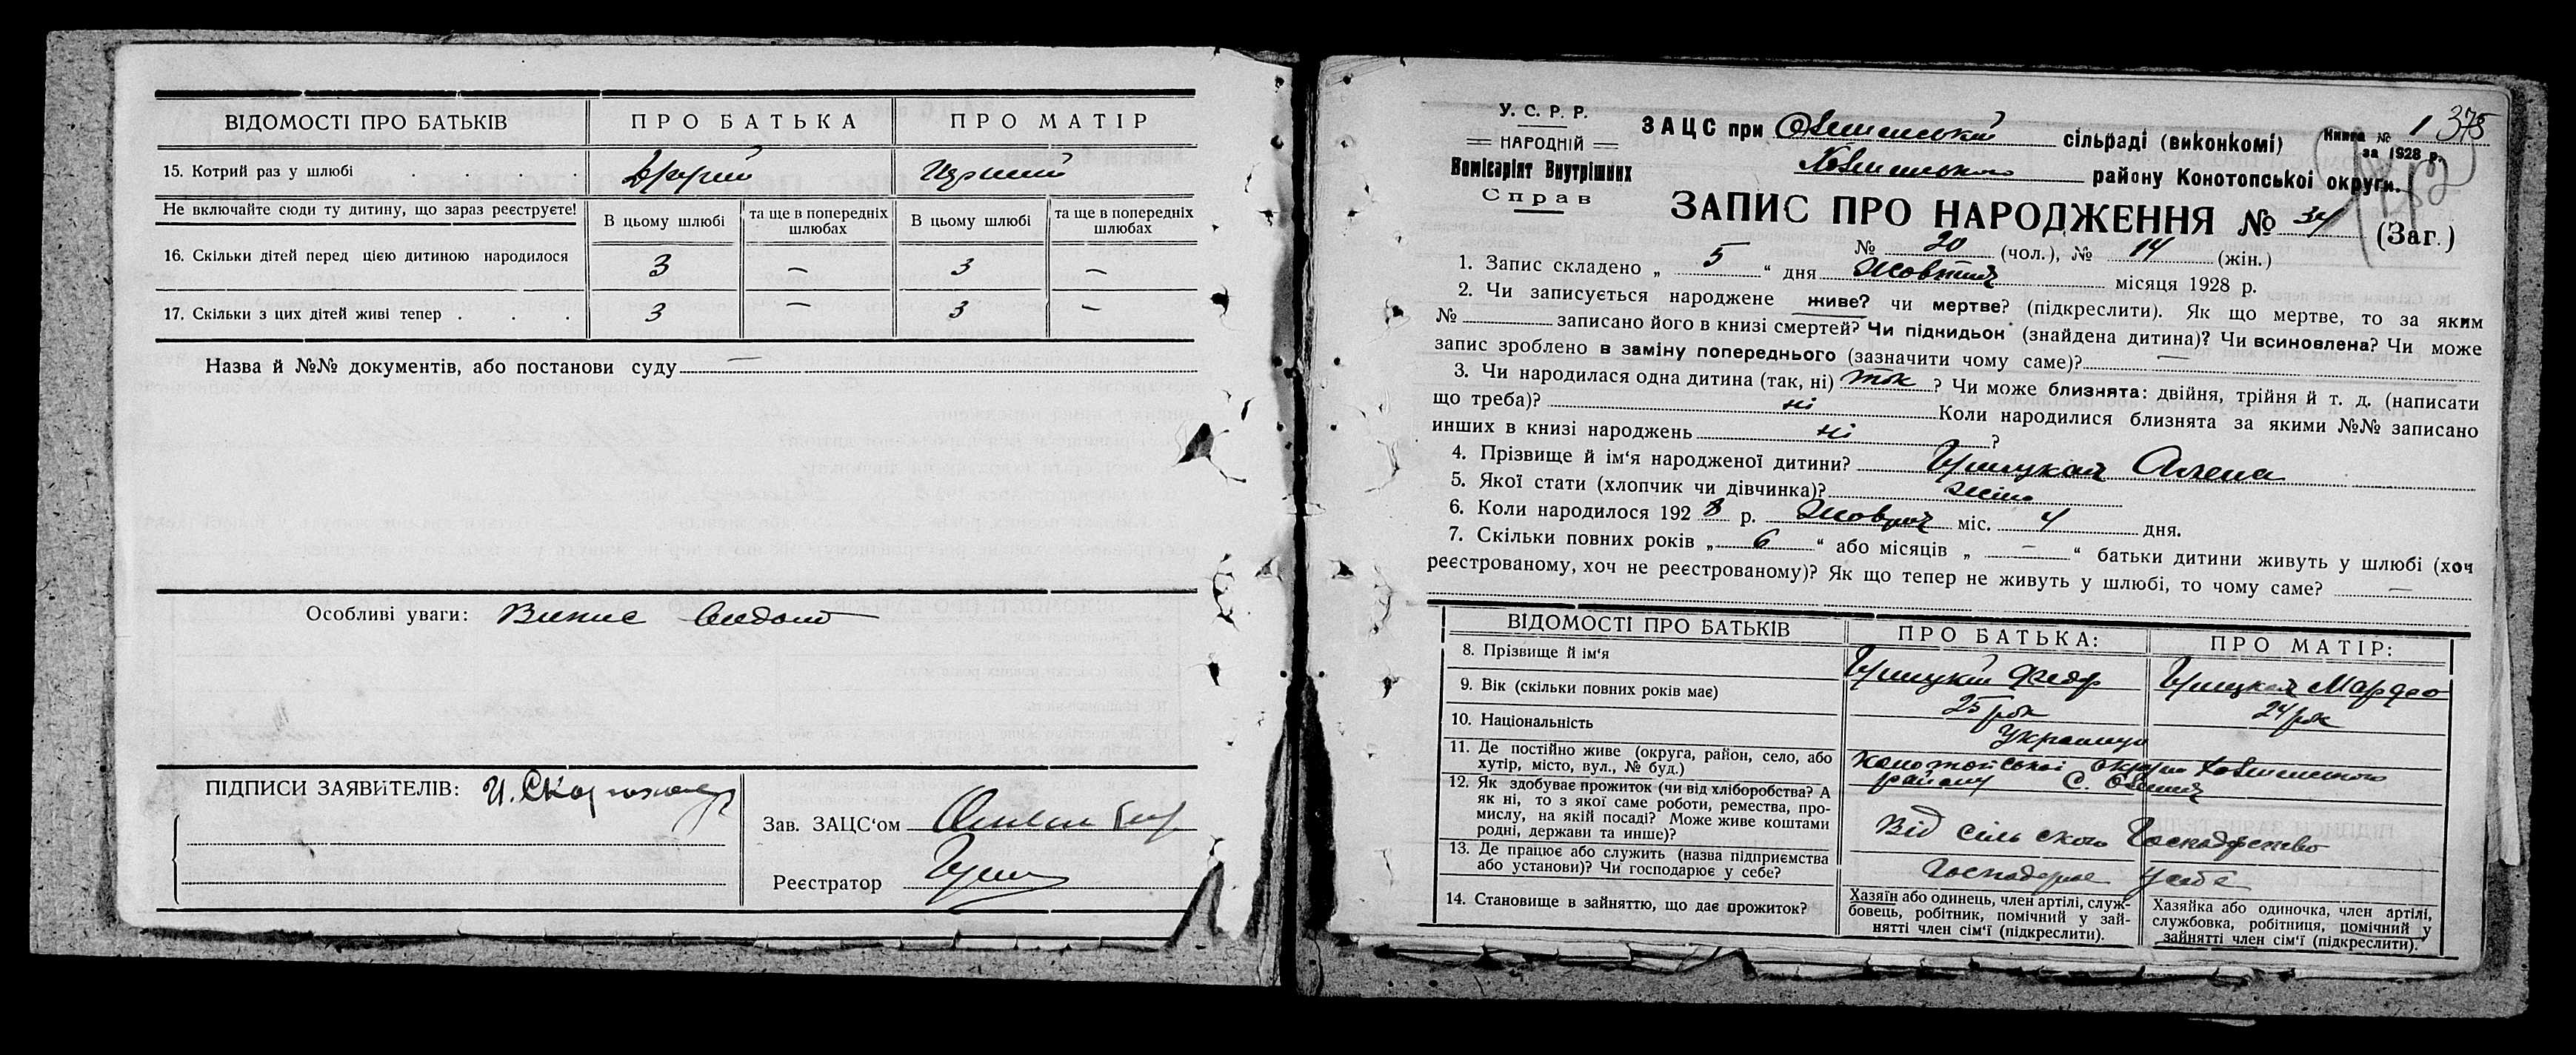 ВІДОМОСТІ ПРО БАТЬКІВ
ПРО БАТЬКА
ПРО МАТІР
15. Котрий раз у шлюбі . . . .
Другий
Перший
Не включайте сюди ту дитину, що зараз реєструєте!
В цьому шлюбі
та ще в попередніх шлюбах
В цьому шлюбі
та ще в попередніх шлюбах
16. Скільки дітей перед цією дитиною народилося
3 — 3 —
17. Скільки з цих дітей живі тепер . . .
3 — 3 —
Назва й №№ документів, або постанови суду —
Особливі уваги: Випис видано
ПІДПИСИ ЗАЯВИТЕЛІВ:
Зав. ЗАЦС‘ом
Реєстратор
У. С. Р. Р.
НАРОДНІЙ
Комісаріят Внутрішних
Справ
ЗАЦС при сільраді (виконкомі)
Книга № 1 375
за 1928 р.
району Конотопської округи.
ЗАПИС ПРО НАРОДЖЕННЯ № 34 (Заг.)
№ 20 (чол.), № 14 (жін.)
1. Запис складено „ 5 “ дня Жовтня місяця 1928 р.
2. Чи записується народжене живе? чи мертве? (підкреслити). Як що мертве, то за яким
№ записано його в книзі смертей? Чи підкидьок (знайдена дитина)? Чи всиновлена? Чи може
запис зроблено в заміну попереднього (зазначити чому саме)? —
3. Чи народилася одна дитина (так, ні) так ? Чи може близнята: двійня, трійня й т. д. (написати
що треба)? ні Коли народилися близнята за якими №№ записано
инших в книзі народжень ні ?
4. Прізвище й ім‘я народженої дитини? Грицкая Алена
5. Якої стати (хлопчик чи дівчинка)? жіно
6. Коли народилося 1928 р. Жовтня міс. 4 дня.
7. Скільки повних років „ 6 “ або місяців „ — “ батьки дитини живуть у шлюбі (хоч
реєстрованому, хоч не реєстрованому)? Як що тепер не живуть у шлюбі, то чому саме? —
ВІДОМОСТІ ПРО БАТЬКІВ
ПРО БАТЬКА:
ПРО МАТІР:
8. Прізвище й ім‘я
Грицкий Федр
Грицкая
9. Вік (скільки повних років має)
25 рок
24 рок
10. Національність
Украинци
11. Де постійно живе (округа, район, село, або
хутір, місто, вул., № буд.)
Конотопської округи
району С.
12. Як здобуває прожиток (чи від хліборобства? А
як ні, то з якої саме роботи, ремества, про-
мислу, на якій посаді? Може живе коштами
родні, держави та инше)?
Від сільского Господарство
13. Де працює або служить (назва підприємства
або установи)? Чи господарює у себе?
Господарює у себе
14. Становище в зайняттю, що дає прожиток?
Хазяїн або одинець, член артілі, служ-
бовець, робітник, помічний у зай-
нятті член сім‘ї (підкреслити).
Хазяйка або одиночка, член артілі,
службовка, робітниця, помічний у
зайнятті член сім‘ї (підкреслити).